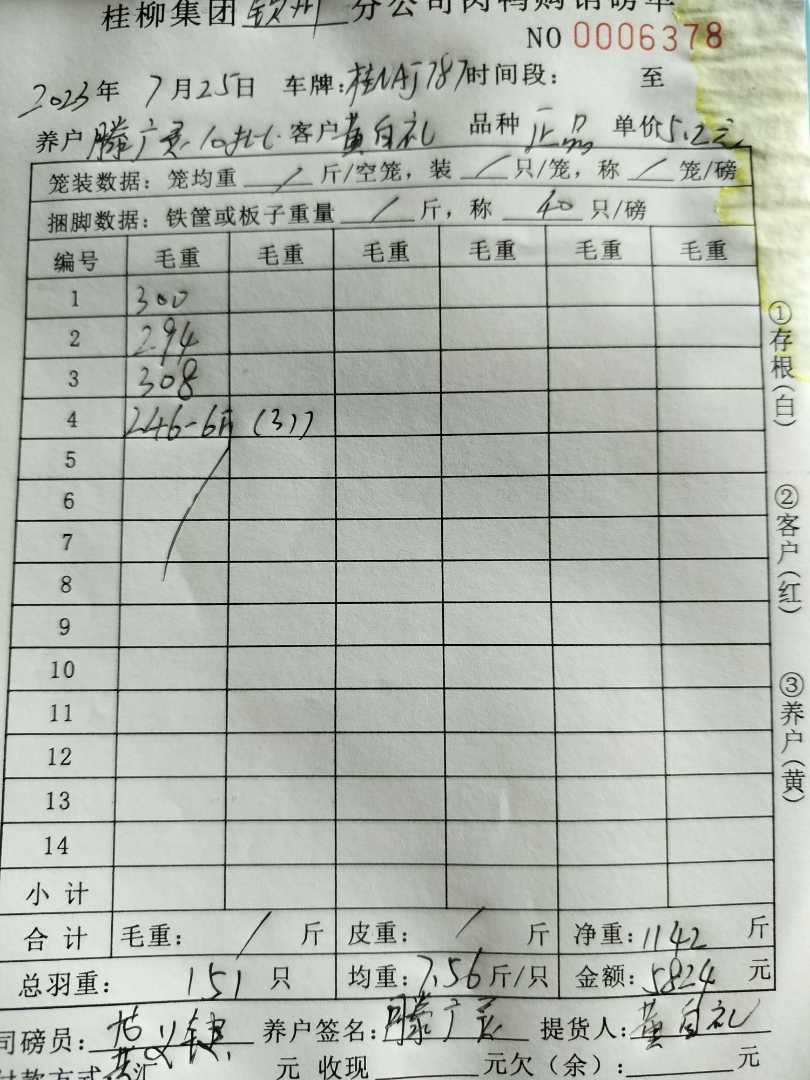 桂柳集团 钦州 分公司肉鸭购销磅单
NO 0006378
2023年 7月25日 车牌:桂NAJ787时间段: 至
养户 滕广 客户黄自礼 品种 正品 单价5.2元
笼装数据: 笼均重 / 斤/空笼, 装 / 只/笼, 称 / 笼/磅
捆脚数据: 铁筐或板子重量 / 斤, 称 40 只/磅
编号 毛重 毛重 毛重 毛重 毛重 毛重
1 300
2 294
3 308
4 246-6斤 (31)
5
6
7
8
9
10
11
12
13
14
小 计
合 计 毛重: / 斤 皮重: / 斤 净重:1142 斤
总羽重: 151 只 均重:7.56斤/只 金额:5824 元
司磅员: 养户签名:滕广 提货人:黄自礼
付款方式: 汇 元 收现 元欠(余): 元
①存根(白)
②客户(红)
③养户(黄)